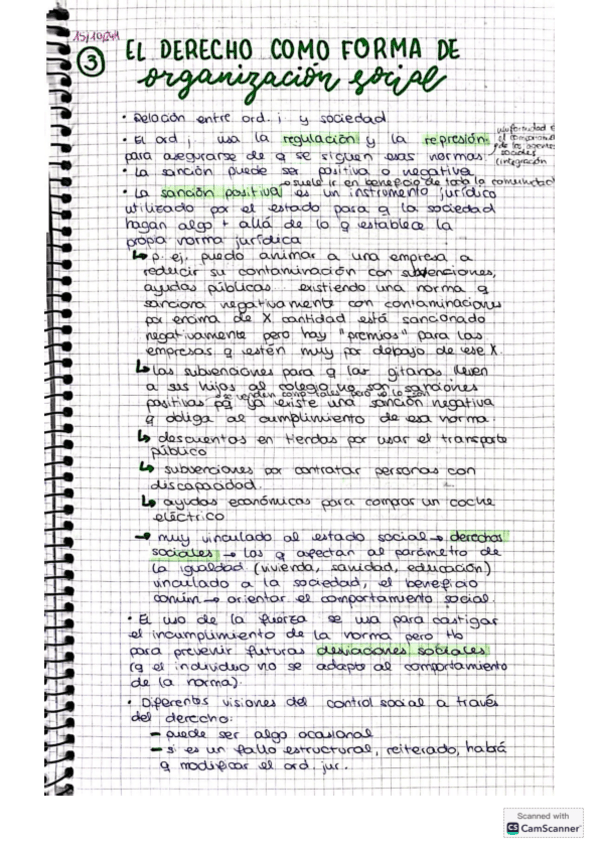 15/10/24
③ EL DERECHO COMO FORMA DE
organización social
• Relación entre ord. j y sociedad
• El ord j usa la regulación y la represión
para asegurarse de q se siguen esas normas.
uniformidad
el comportam
de los agentes
sociales
(integración
• La sanción puede ser positiva o negativa
→ suele ir en beneficio de toda la comunidad
• La sanción positiva es un instrumento jurídico
utilizado por el estado para q la sociedad
hagan algo + allá de lo q establece la
propia norma jurídica
↳ p. ej. puedo animar a una empresa a
reducir su contaminación con subvenciones,
ayudas públicas existiendo una norma q
sanciona negativamente con contaminaciones
por encima de X cantidad está sancionado
negativamente pero hay "premios" para las
empresas q estén muy por debajo de ese X.
↳ las subvenciones para q las gitanas lleven
a sus hijos al colegio no son sanciones
se venden como tales pero no lo son
positivas pq ya existe una sanción negativa
q obliga al cumplimiento de esa norma.
↳ descuentos en tiendas por usar el transporte
público
↳ subvenciones por contratar personas con
discapacidad.
↳ ayudas económicas para comprar un coche
eléctrico
→ muy vinculado al estado social → derechos
sociales → los q afectan al parámetro de
la igualdad (vivienda, sanidad, educación)
vinculado a la sociedad, el beneficio
común → orientar el comportamiento social.
• El uso de la fuerza se usa para castigar
el incumplimiento de la norma pero tb
para prevenir futuras desviaciones sociales
(q el individuo no se adapta al comportamiento
de la norma).
• Diferentes visiones del control social a través
del derecho:
– puede ser algo ocasional
– si es un fallo estructural, reiterado, habrá
q modificar el ord. jur.
Scanned with
CS CamScanner